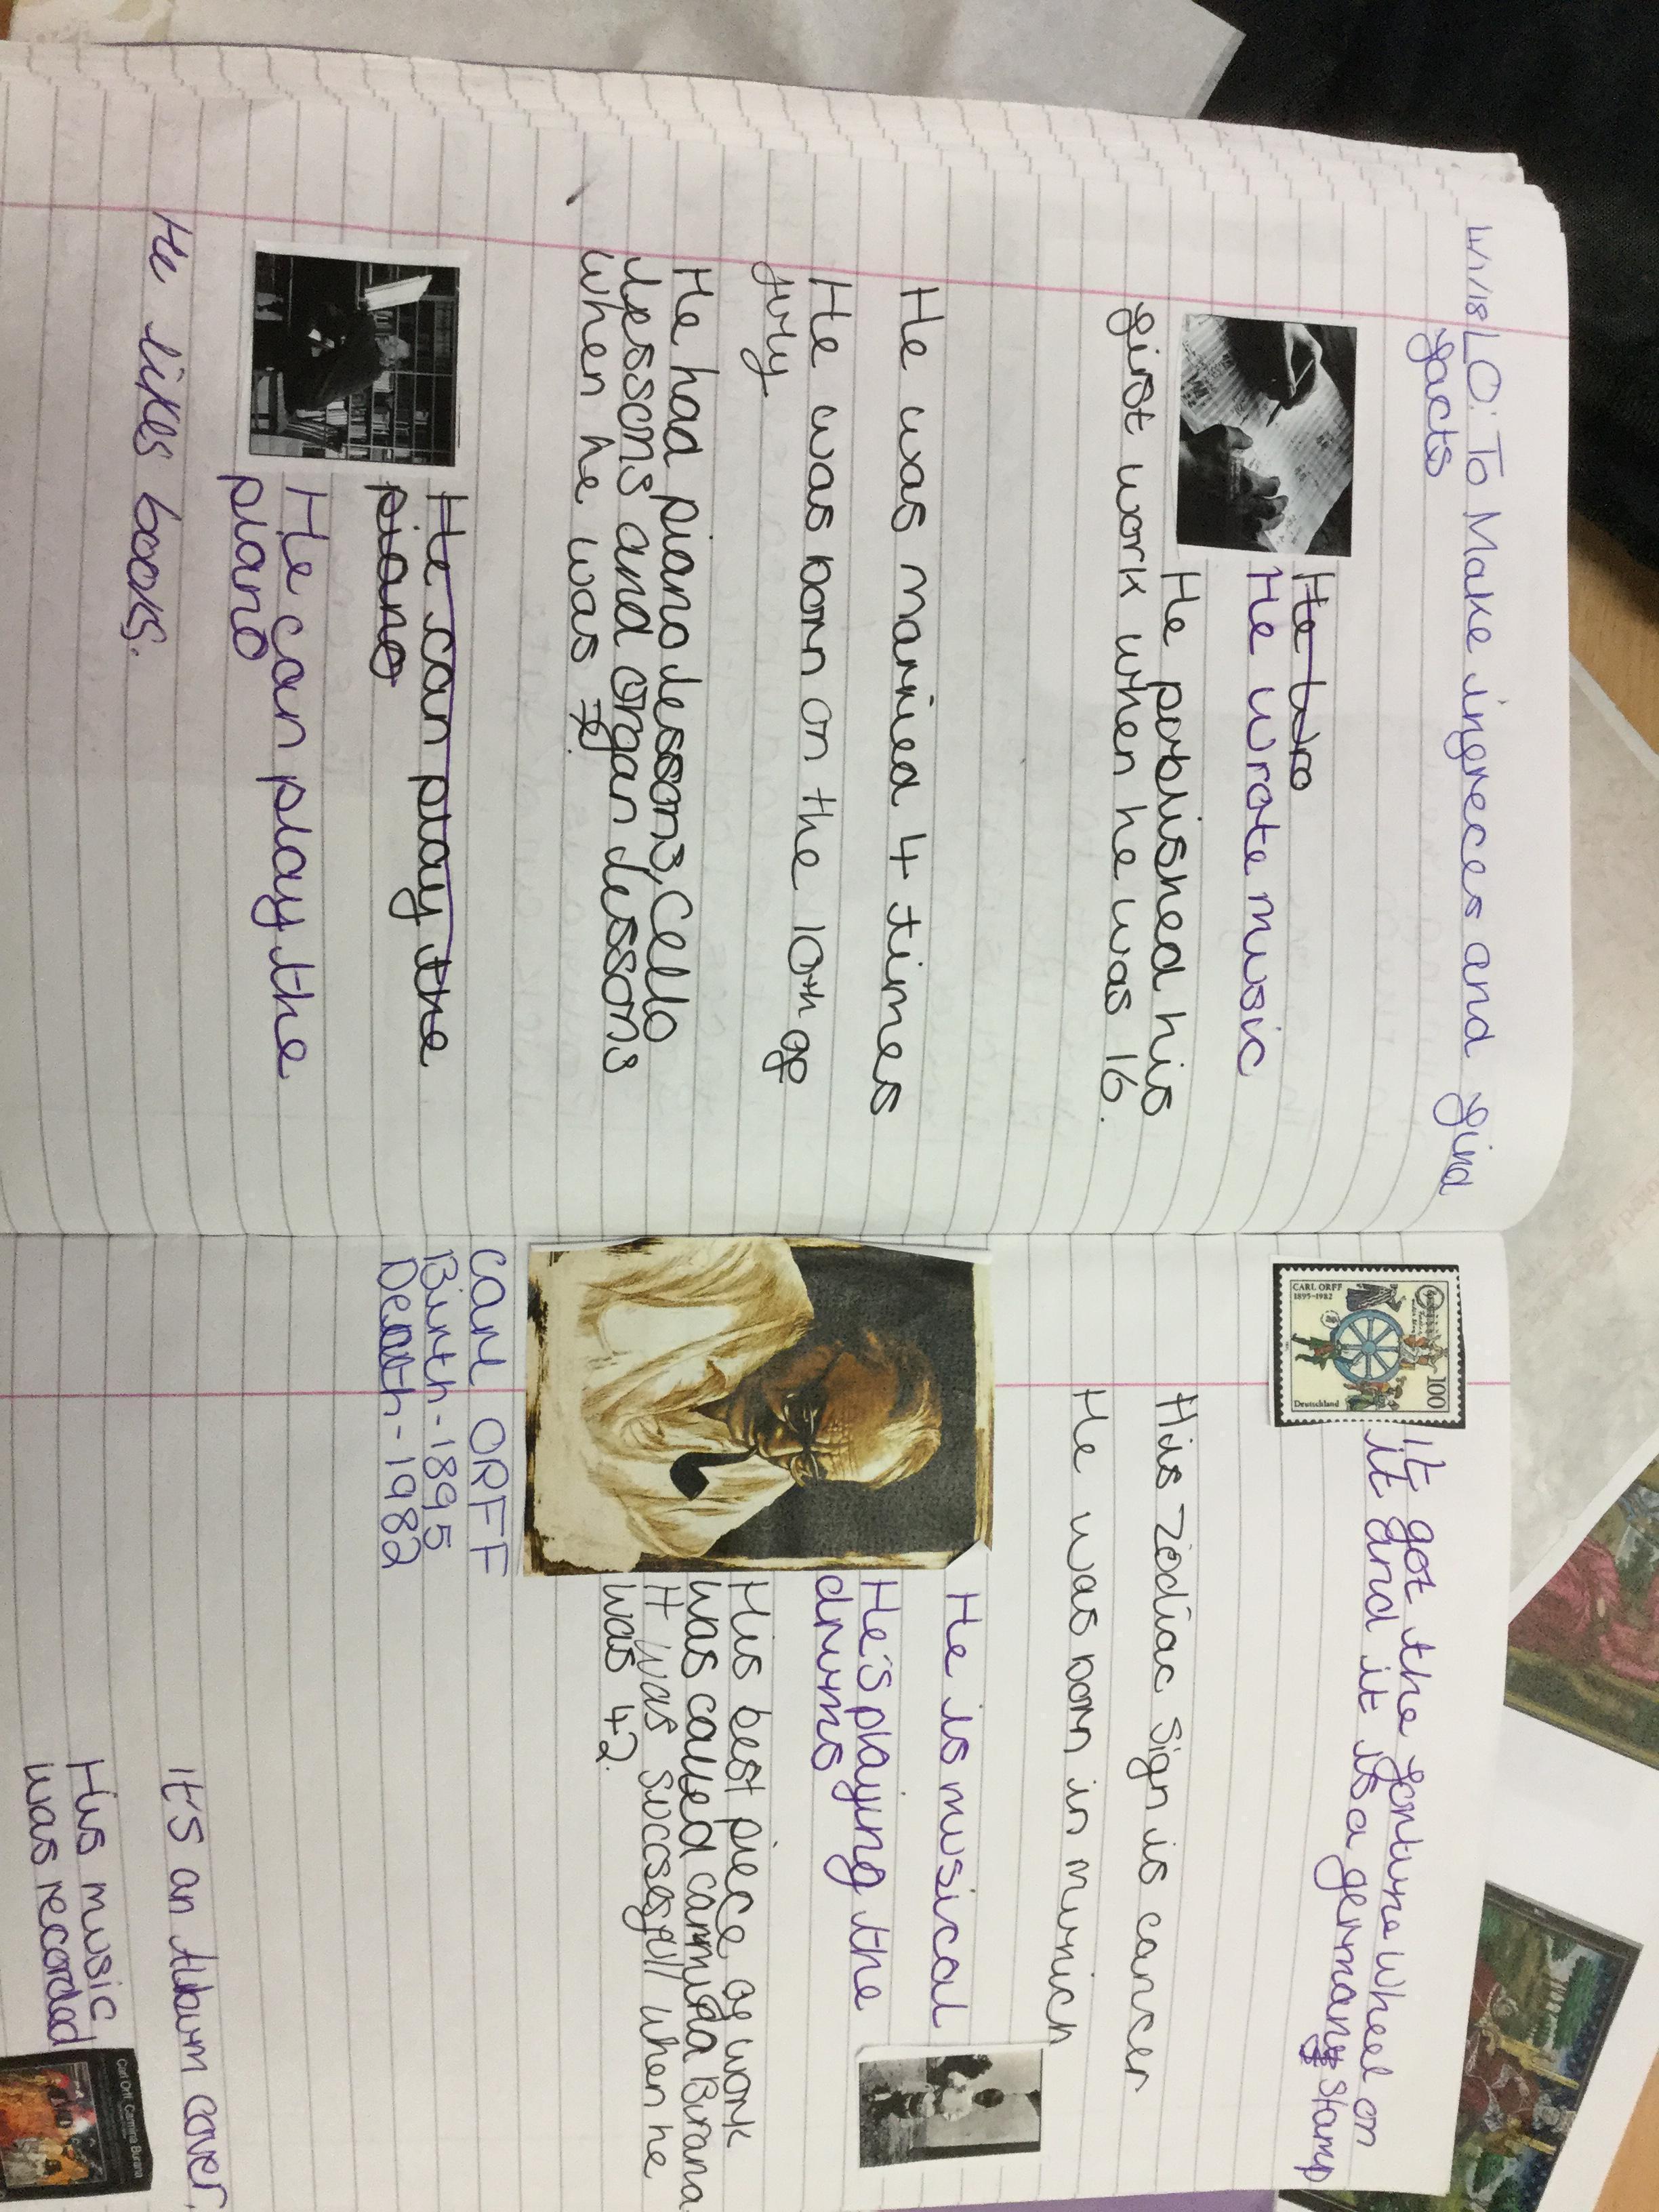 4/1/18 LO: To Make ingreces and find
facts
He wro
He wrote music
He published his
first work when he was 16.
He was married 4 times
He was born on the 10th of
July
He had piano lessons, Cello
lessons and organ lessons
when he was
He can play the
piano
He can play the
piano
He likes books.
CARL ORFF
1895-1982
100
Deutschland
It got the fortune wheel on
it and it is a german stamp
His Zodiac sign is cancer
He was born in munich
He is musical
He's playing the
drums
His best piece of work
was called carmida Burana
It was succsesfull when he
was 42.
Carl ORFF
Birth-1895
Death-1982
It's an Album cover.
His music
was recorded
Carl Orff Carmina Burana